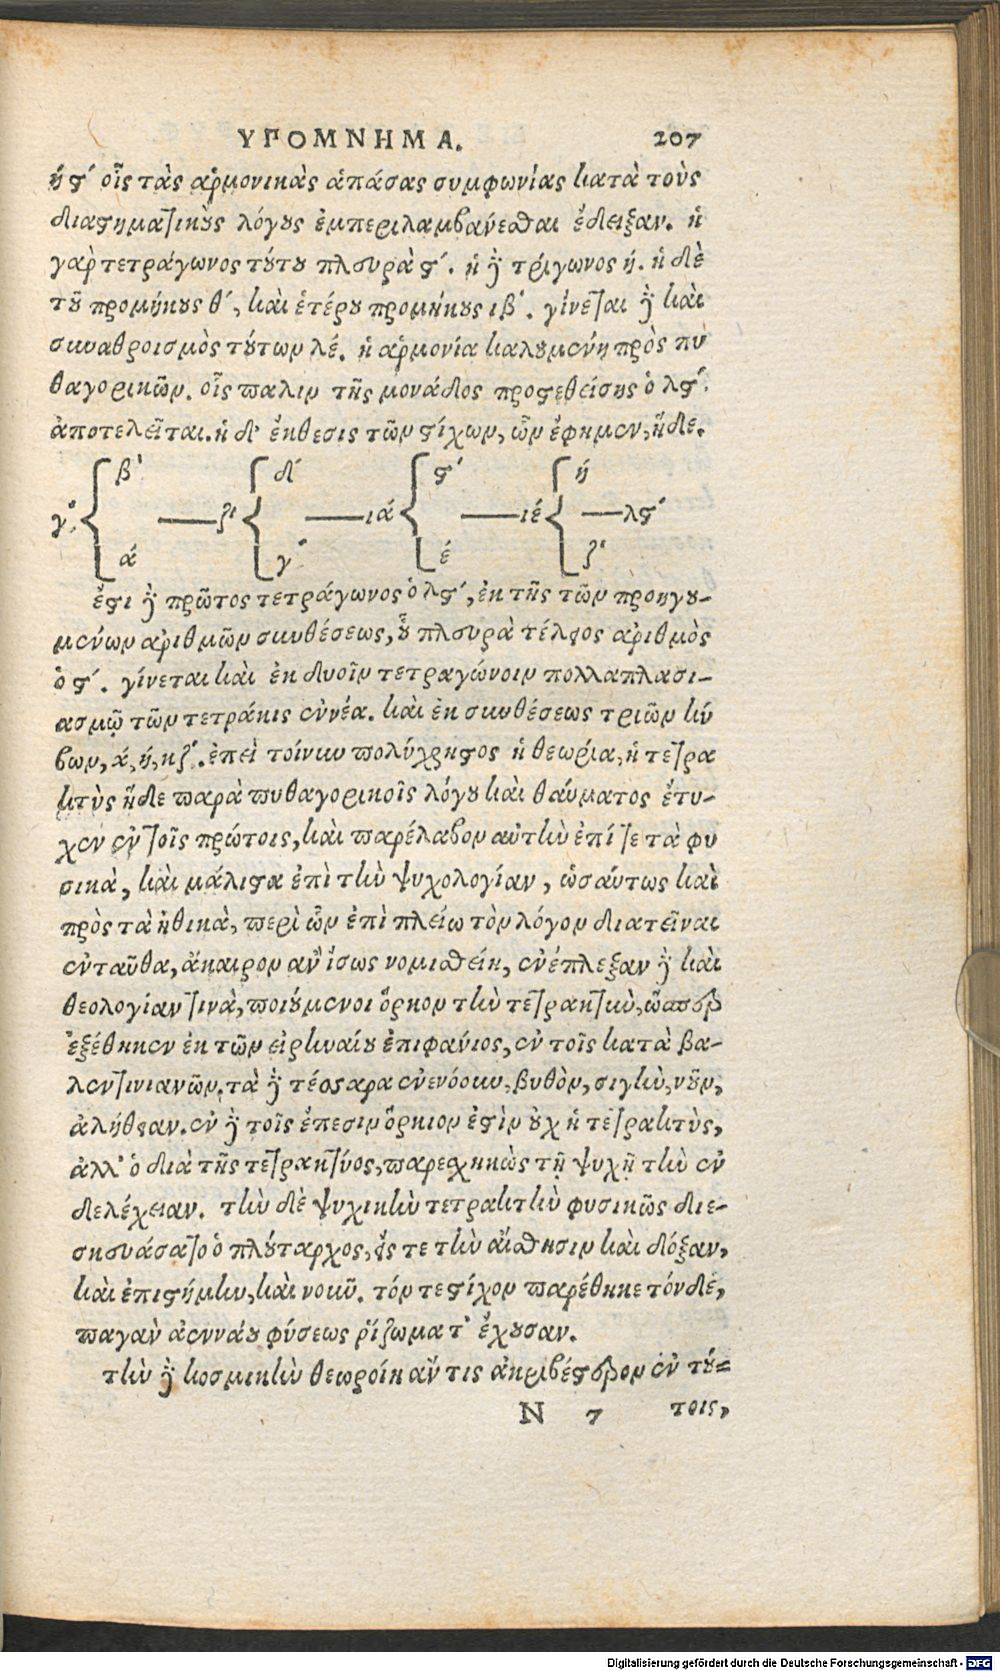 ΥΠΟΜΝΗΜΑ. 207
ή ϛ΄ οἷς τὰς ἁρμονικὰς ἁπάσας συμφωνίας κατὰ τοὺς
διαστηματικοὺς λόγους ἐμπεριλαμβάνεσθαι ἔδειξαν. ἡ
γὰρ τετράγωνος τούτου πλευρὰ ϛ΄. ἡ γὰρ τρίγωνος ή. ἡ δὲ
τοῦ προμήκους θ΄, καὶ ἑτέρου προμήκους ιβ΄. γίνεται γὰρ καὶ
συναθροισμὸς τούτων λέ. ἡ ἁρμονία καλουμένη πρὸς πυ
θαγορικῶν. οἷς παλιν τῆς μονάδος προστεθείσης ὁ λϛ΄.
ἀποτελεῖται. ἡ δ' ἔκθεσις τῶν στίχων, ὧν ἔφημεν, ἥδε.
β΄ δ΄ ϛ΄ ή
γ΄. ζ΄ ιά ιέ λϛ΄
ά γ΄ έ ζ΄
ἔστι γὰρ πρῶτος τετράγωνος ὁ λϛ΄, ἐκ τῆς τῶν προηγου-
μένων ἀριθμῶν συνθέσεως, οὗ πλευρὰ τέλειος ἀριθμὸς
ὁ ϛ΄. γίνεται καὶ ἐκ δυοῖν τετραγώνοιν πολλαπλασι-
ασμῷ τῶν τετράκις ἐννέα. καὶ ἐκ συνθέσεως τριῶν κύ
βων, ά, ή, κζ΄. ἐπεὶ τοίνυν πολύχρηστος ἡ θεωρία, ἡ τετρα
κτὺς ἥδε παρὰ πυθαγορικοῖς λόγου καὶ θαύματος ἔτυ-
χεν ἐν τοῖς πρώτοις, καὶ παρέλαβον αὐτὴν ἐπί τε τὰ φυ
σικὰ, καὶ μάλιστα ἐπὶ τὴν ψυχολογίαν, ὡσαύτως καὶ
πρὸς τὰ ἠθικὰ, περὶ ὧν ἐπὶ πλείω τὸν λόγον διατεῖναι
ἐνταῦθα, ἄκαιρον ἂν ἴσως νομισθείη, ἐνέπλεξαν γὰρ καὶ
θεολογίαν τινὰ, ποιούμενοι ὅρκον τὴν τετρακτὺν, ὥσπερ
ἐξέθηκεν ἐκ τῶν εἰρηναίου ἐπιφάνιος, ἐν τοῖς κατὰ βα-
λεντινιανῶν. τὰ γὰρ τέσσαρα ἐνενόουν, βυθὸν, σιγὴν, νοῦν,
ἀλήθειαν. ἐν γὰρ τοῖς ἔπεσιν ὅρκιον ἐστὶν οὐχ ἡ τετρακτὺς,
ἀλλ' ὁ διὰ τῆς τετρακτύος, παρεσχηκὼς τῇ ψυχῇ τὴν ἐν
δελέχειαν. τὴν δὲ ψυχικὴν τετρακτὴν φυσικῶς διε-
σκευάσατο ὁ πλούταρχος, ἔς τε τὴν αἴσθησιν καὶ δόξαν,
καὶ ἐπιστήμην, καὶ νοῦν. τόν τε στίχον παρέθηκε τόνδε,
παγὰν ἀεννάου φύσεως ῥίζωμα τ' ἔχουσαν.
τὴν γὰρ κοσμικὴν θεωροίη ἄν τις ἀκριβέστερον ἐν τού-
N 7 τοις,
Digitalisierung gefördert durch die Deutsche Forschungsgemeinschaft - DFG